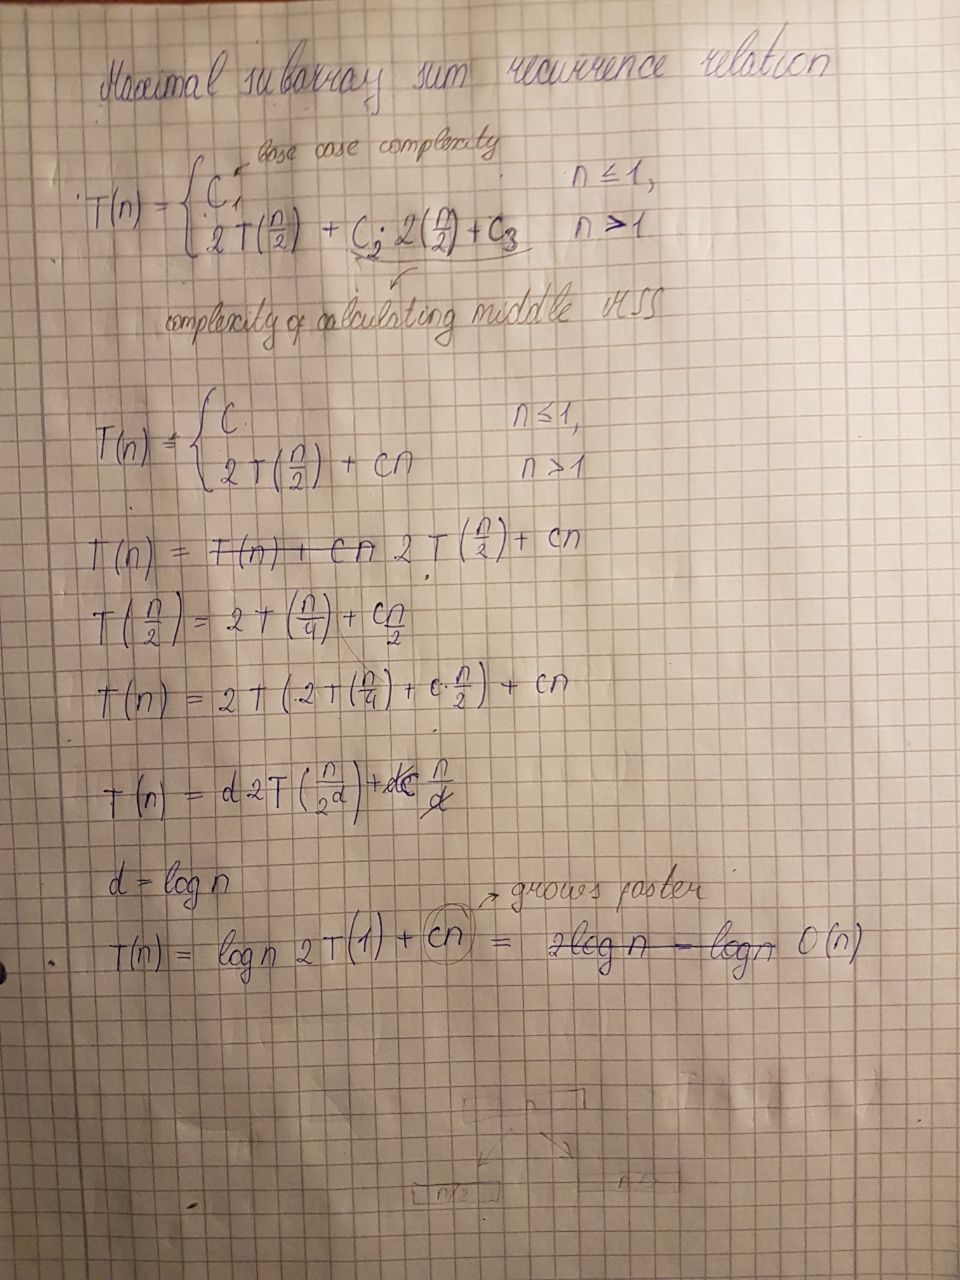 Maximal subarray sum recurrence relation
base case complexity
T(n) = { C₁ n ≤ 1,
2T(n/2) + C₂ · 2(n/2) + C₃ n > 1
complexity of calculating middle MSS
T(n) = { C n ≤ 1,
2T(n/2) + cn n > 1
T(n) = T(n) + cn 2T(n/2) + cn
T(n/2) = 2T(n/4) + cn/2
T(n) = 2T(2T(n/4) + c·n/2) + cn
T(n) = d2T(n/2d) + dc n/d
d = log n
grows faster
T(n) = log n 2T(1) + cn = 2log n = log n O(n)
n
n/2 n/2